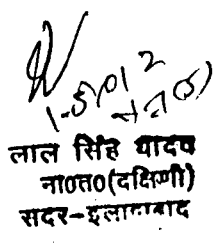 लाल सिंह यादव
ना०त० (दक्षिणी)
सदर-इलाहाबाद